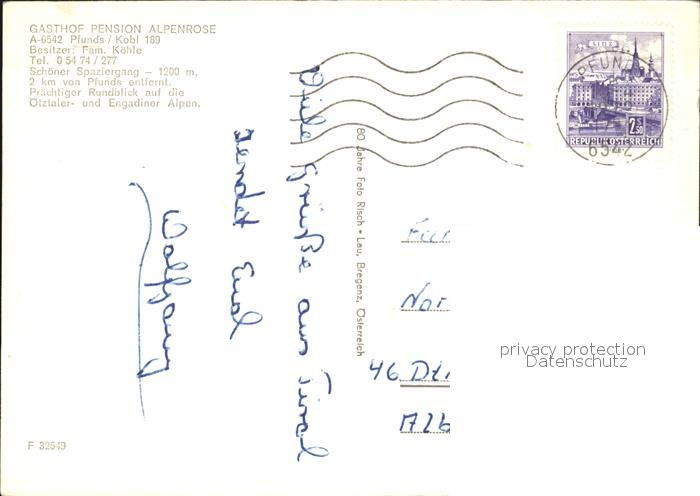 GASTHOF PENSION ALPENROSE
A-6542 Pfunds / Kobl 189
Besitzer: Fam. Köhle
Tel. 0 54 74 / 277
Schöner Spaziergang – 1200 m,
2 km von Pfunds entfernt.
Prächtiger Rundblick auf die
Ötztaler- und Engadiner Alpen.
Viele Grüße aus Tirol
sendet Euch
Wolfgang
80 Jahre Foto Risch • Lau, Bregenz, Österreich
LINZ
2.50
REPUBLIK ÖSTERREICH
PFUNDS
Nor
46 Dt
Alb
privacy protection
Datenschutz
F 32549